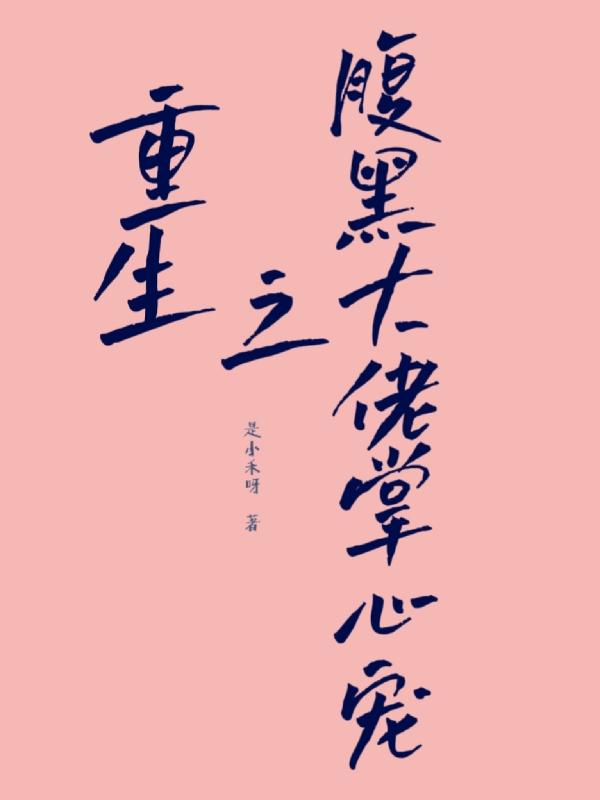 重生
之
腹黑大佬掌心宠
是小禾呀 著